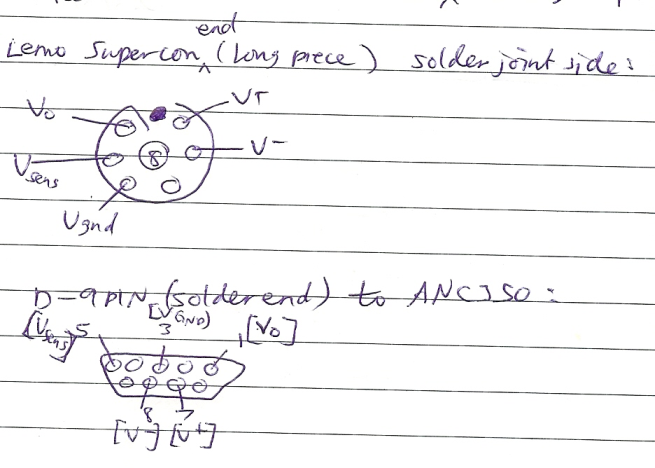 end
Lemo Supercon (long piece) solder joint side:
Vo V+
8 V-
Vsens
Vgnd
D-9 PIN (solder end) to ANC350:
[Vsens] 5 [VGND] 3 1 [Vo]
8 7
[V-] [V+]